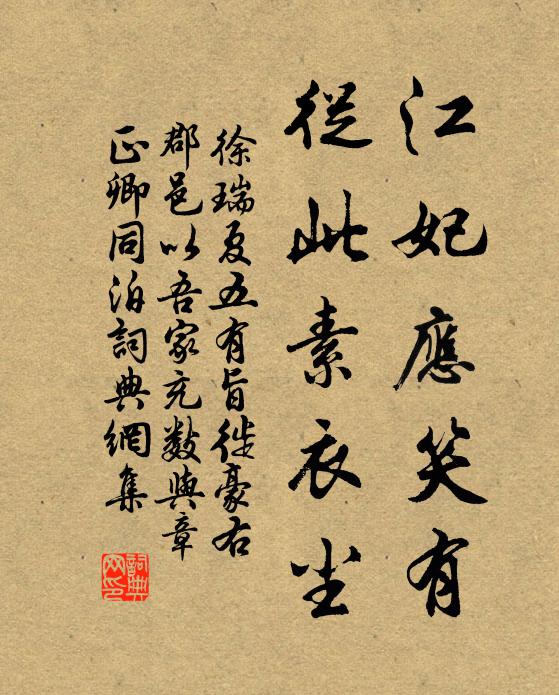 江妃應笑有
從此素衣尘
徐瑞夏五有旨徙豪右
郡邑以吾家充数與章
正卿同泊詞典網集
詞典網印